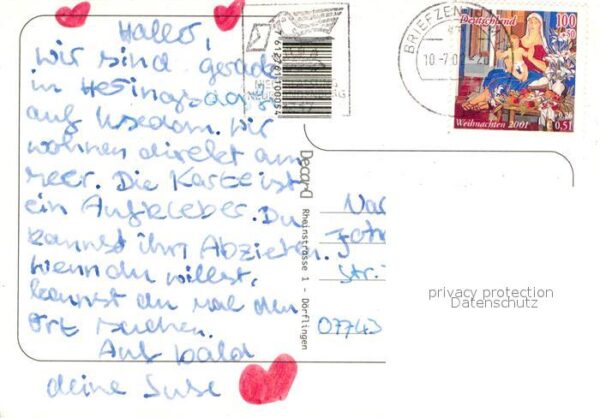 Hallo,
wir sind gerade
in Heringsdorf
auf Usedom. Wir
wohnen direkt am
Meer. Die Karte ist
ein Aufkleber. Du
kannst ihn Abziehen.
Wenn du willst,
kannst du mal den
Ort suchen.
Auf bald
deine Suse
7612701100054
BRIEFZEN
10-7.0
Deutschland
100
+50
0,51
Weihnachten 2001
Decard Rheinstrasse 1 - Dörflingen
Str.
07743
privacy protection
Datenschutz